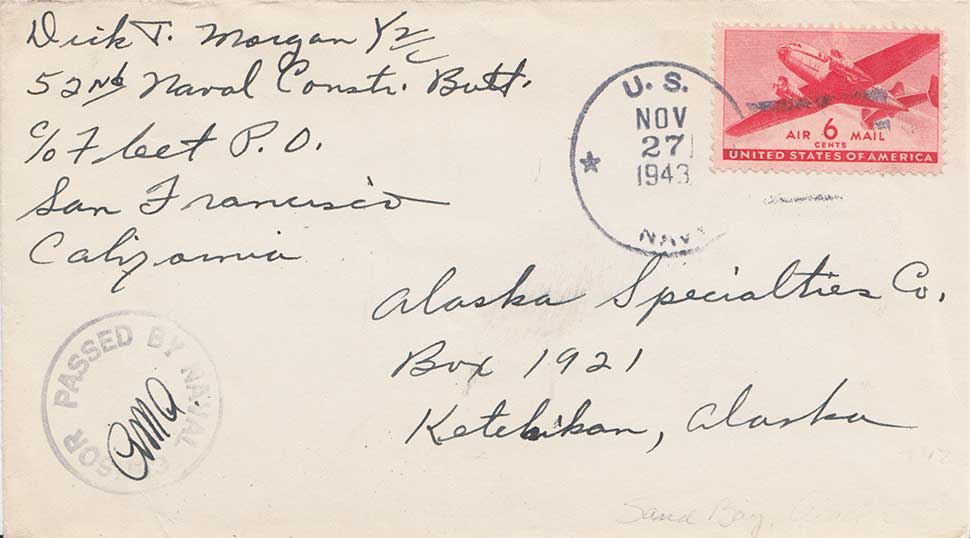 Dick T. Morgan Y2/c
52nd Naval Constr. Batt.
c/o Fleet P.O.
San Francisco
California
U.S.
NOV
27
1943
NAVY
AIR 6 MAIL
CENTS
UNITED STATES OF AMERICA
Alaska Specialties Co.
Box 1921
Ketchikan, Alaska
PASSED BY NAVAL CENSOR
Sand Bay,